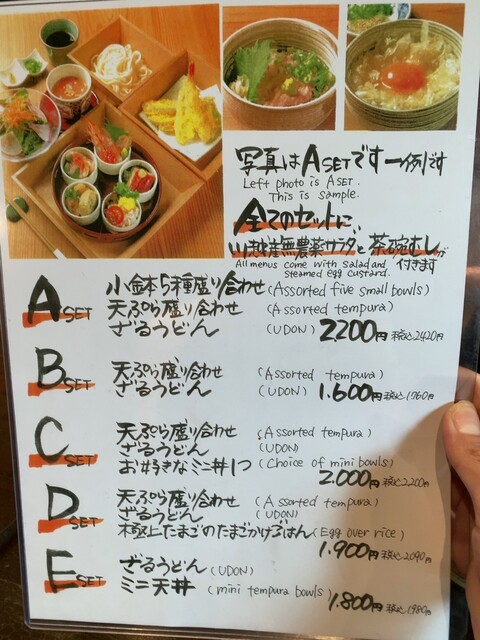 写真はASETです一例です
Left photo is ASET.
This is sample.
全てのセットに、
無農薬サラダと茶碗むしが
付きます
All menus come with salad and
steamed egg custard.
A SET
小金本5種盛り合わせ (Assorted five small bowls)
天ぷら盛り合わせ (Assorted tempura)
ざるうどん (UDON) 2200円 税込2420円
B SET
天ぷら盛り合わせ (Assorted tempura)
ざるうどん (UDON) 1.600円 税込1760円
C SET
天ぷら盛り合わせ (Assorted tempura)
ざるうどん (UDON)
お好きなミニ丼1つ (Choice of mini bowls)
2.000円 税込2,200円
D SET
天ぷら盛り合わせ (Assorted tempura)
ざるうどん (UDON)
極上たまごのたまごかけごはん (Egg over rice)
1.900円 税込2,090円
E SET
ざるうどん (UDON)
ミニ天丼 (mini tempura bowls)
1.800円 税込1980円